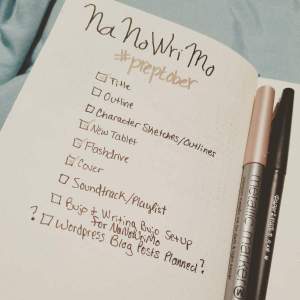 NaNoWriMo
#preptober
Title
Outline
Character Sketches/Outlines
New Tablet
Flashdrive
Cover
Soundtrack/Playlist
Bujo + Writing Bujo Setup
For NaNoWriMo
? Wordpress Blog Posts Planned?
metallic marker